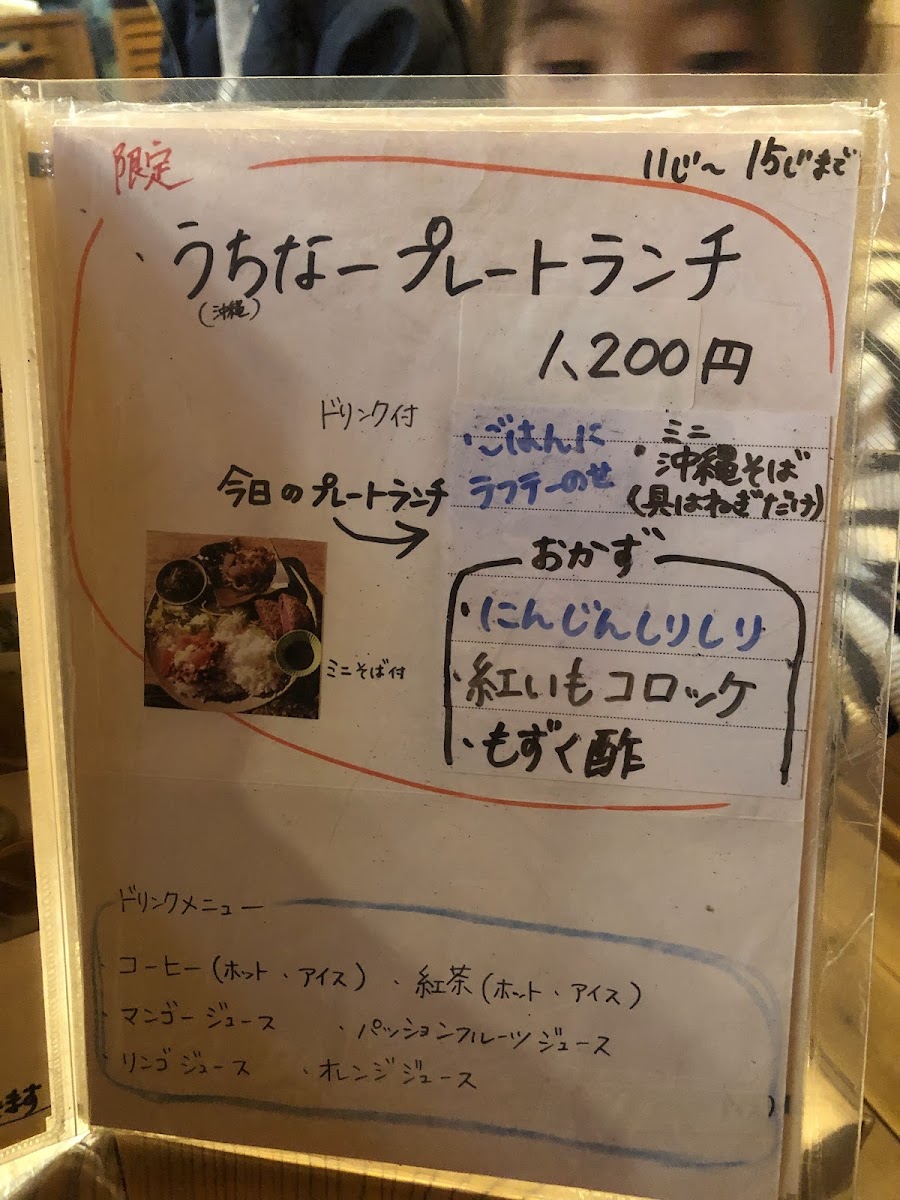 限定
11じ～15じまで
・うちなープレートランチ
(沖縄)
1,200円
ドリンク付
今日のプレートランチ
・ごはんに
ラフテーのせ
ミニ
・沖縄そば
(具はねぎだけ)
おかず
・にんじんしりしり
・紅いもコロッケ
・もずく酢
ミニそば付
ドリンクメニュー
・コーヒー(ホット・アイス) ・紅茶(ホット・アイス)
・マンゴージュース ・パッションフルーツジュース
・リンゴジュース ・オレンジジュース
ます